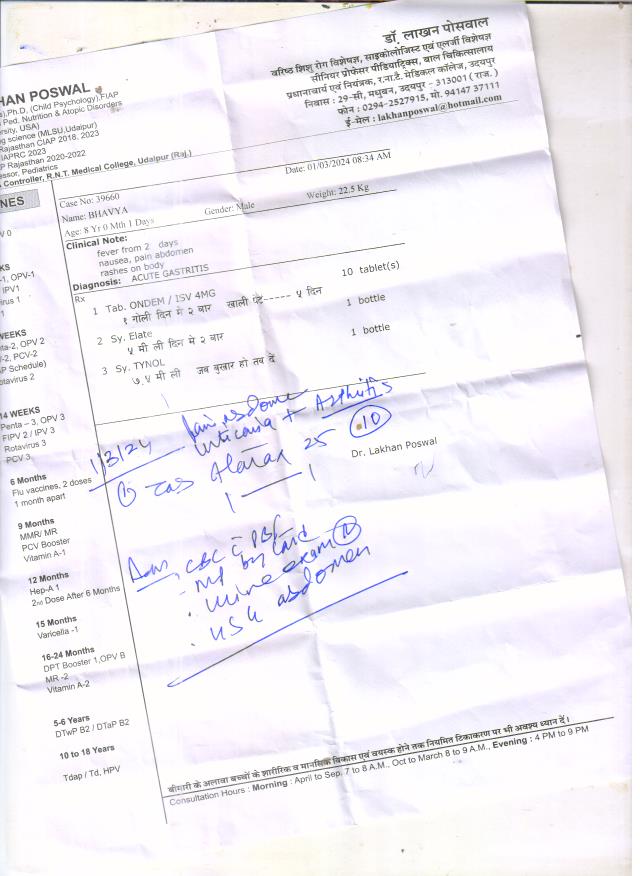 डॉ. लाखन पोसवाल
वरिष्ठ शिशु रोग विशेषज्ञ, साइकोलोजिस्ट एवं एलर्जी विशेषज्ञ
सीनियर प्रोफेसर पीडियाट्रिक्स, बाल चिकित्सालय
प्रधानाचार्य एवं नियंत्रक, र.ना.टै. मेडिकल कॉलेज, उदयपुर
निवास : 29-सी, मधुबन, उदयपुर - 313001 ( राज. )
फोन : 0294-2527915, मो. 94147 37111
ई-मेल : lakhanposwal@hotmail.com
HAN POSWAL
Ph.D. (Child Psychology),FIAP
Ped. Nutrition & Atopic Disorders
USA)
science (MLSU,Udaipur)
Rajasthan CIAP 2018, 2023
IAPRC 2023
P Rajasthan 2020-2022
essor, Pediatrics
Controller, R.N.T. Medical College, Udaipur (Raj.)
Date: 01/03/2024 08:34 AM
Case No: 39660
Name: BHAVYA
Gender: Male
Weight: 22.5 Kg
Age: 8 Yr 0 Mth 1 Days
Clinical Note:
fever from 2 days
nausea, pain abdomen
rashes on body
Diagnosis: ACUTE GASTRITIS
Rx
1 Tab. ONDEM / ISV 4MG 10 tablet(s)
१ गोली दिन मे २ बार खाली पेट----- ५ दिन
2 Sy. Elate 1 bottle
५ मी ली दिन मे २ बार
3 Sy. TYNOL 1 bottle
७.५ मी ली जब बुखार हो तब दें
1/3/24
urticaria + Arthritis
① Atarax 25 ⑩
1 — 1
Dr. Lakhan Poswal
CBC c̄ PBF
- MP by Card
· urine exam
· USG abdomen
NES
V 0
KS
-1, OPV-1
IPV1
irus 1
1
WEEKS
ta-2, OPV 2
V-2, PCV-2
P Schedule)
otavirus 2
14 WEEKS
Penta – 3, OPV 3
FIPV 2 / IPV 3
Rotavirus 3
PCV 3
6 Months
Flu vaccines, 2 doses
1 month apart
9 Months
MMR/ MR
PCV Booster
Vitamin A-1
12 Months
Hep-A 1
2nd Dose After 6 Months
15 Months
Varicella -1
16-24 Months
DPT Booster 1,OPV B
MR -2
Vitamin A-2
5-6 Years
DTwP B2 / DTaP B2
10 to 18 Years
Tdap / Td, HPV
बीमारी के अलावा बच्चों के शारीरिक व मानसिक विकास एवं वयस्क होने तक नियमित टिकाकरण पर भी अवश्य ध्यान दें।
Consultation Hours : Morning : April to Sep. 7 to 8 A.M., Oct to March 8 to 9 A.M., Evening : 4 PM to 9 PM